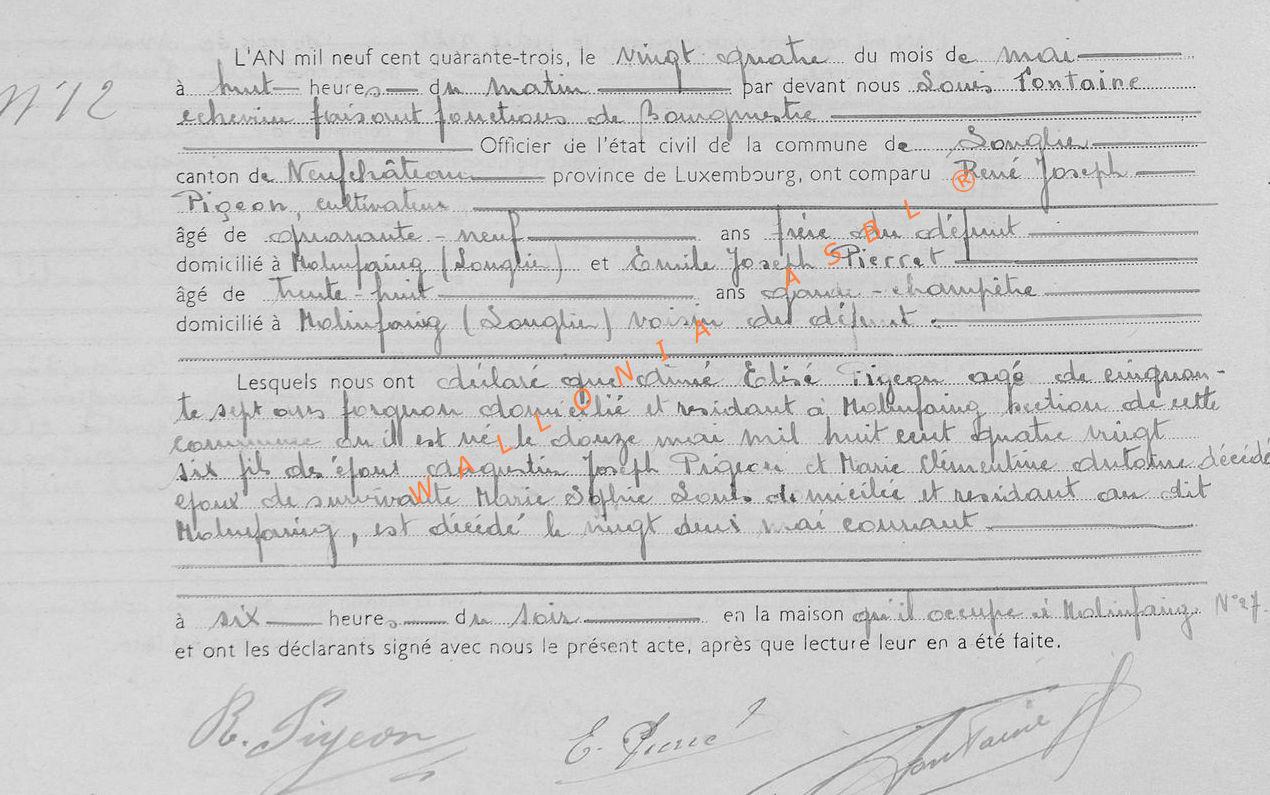 N° 12
L'AN mil neuf cent quarante-trois, le vingt quatre du mois de mai
à huit heures du matin par devant nous Louis Fontaine
echevin faisant fonctions de Bourgmestre
Officier de l'état civil de la commune de Longlier
canton de Neufchâteau province de Luxembourg, ont comparu René Joseph
Pigeon, cultivateur
âgé de quarante-neuf ans frère du défunt
domicilié à Molinfaing (Longlier) et Emile Joseph Pierret
âgé de trente-huit ans garde-champêtre
domicilié à Molinfaing (Longlier) voisin du défunt.
Lesquels nous ont déclaré que Elisé Pigeon agé de cinquan-
te sept ans domicilié et residant à Molinfaing section de cette
commune où il est né le douze mai mil huit cent quatre vingt
six fils des époux Joseph Pigeon et Marie Clémentine Antoine décédés
epoux de survivante Marie Sophie domiciliée et residant au dit
Molinfaing, est décédé le vingt deux mai courant
à six heures du soir en la maison qu'il occupe à Molinfaing N° 27.
et ont les déclarants signé avec nous le présent acte, après que lecture leur en a été faite.
R. Pigeon E. Pierret Fontaine
WALLONIA ASBL ®